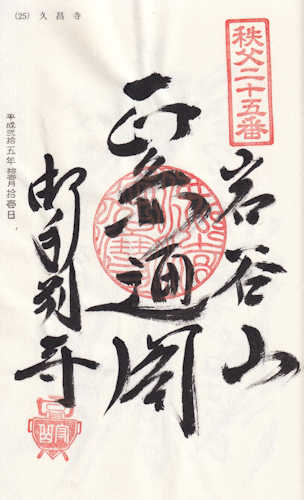 (25) 久昌寺
秩父二十五番
岩谷山
正 通閣
御 判寺
平成弐拾五年 拾壱月拾壱日